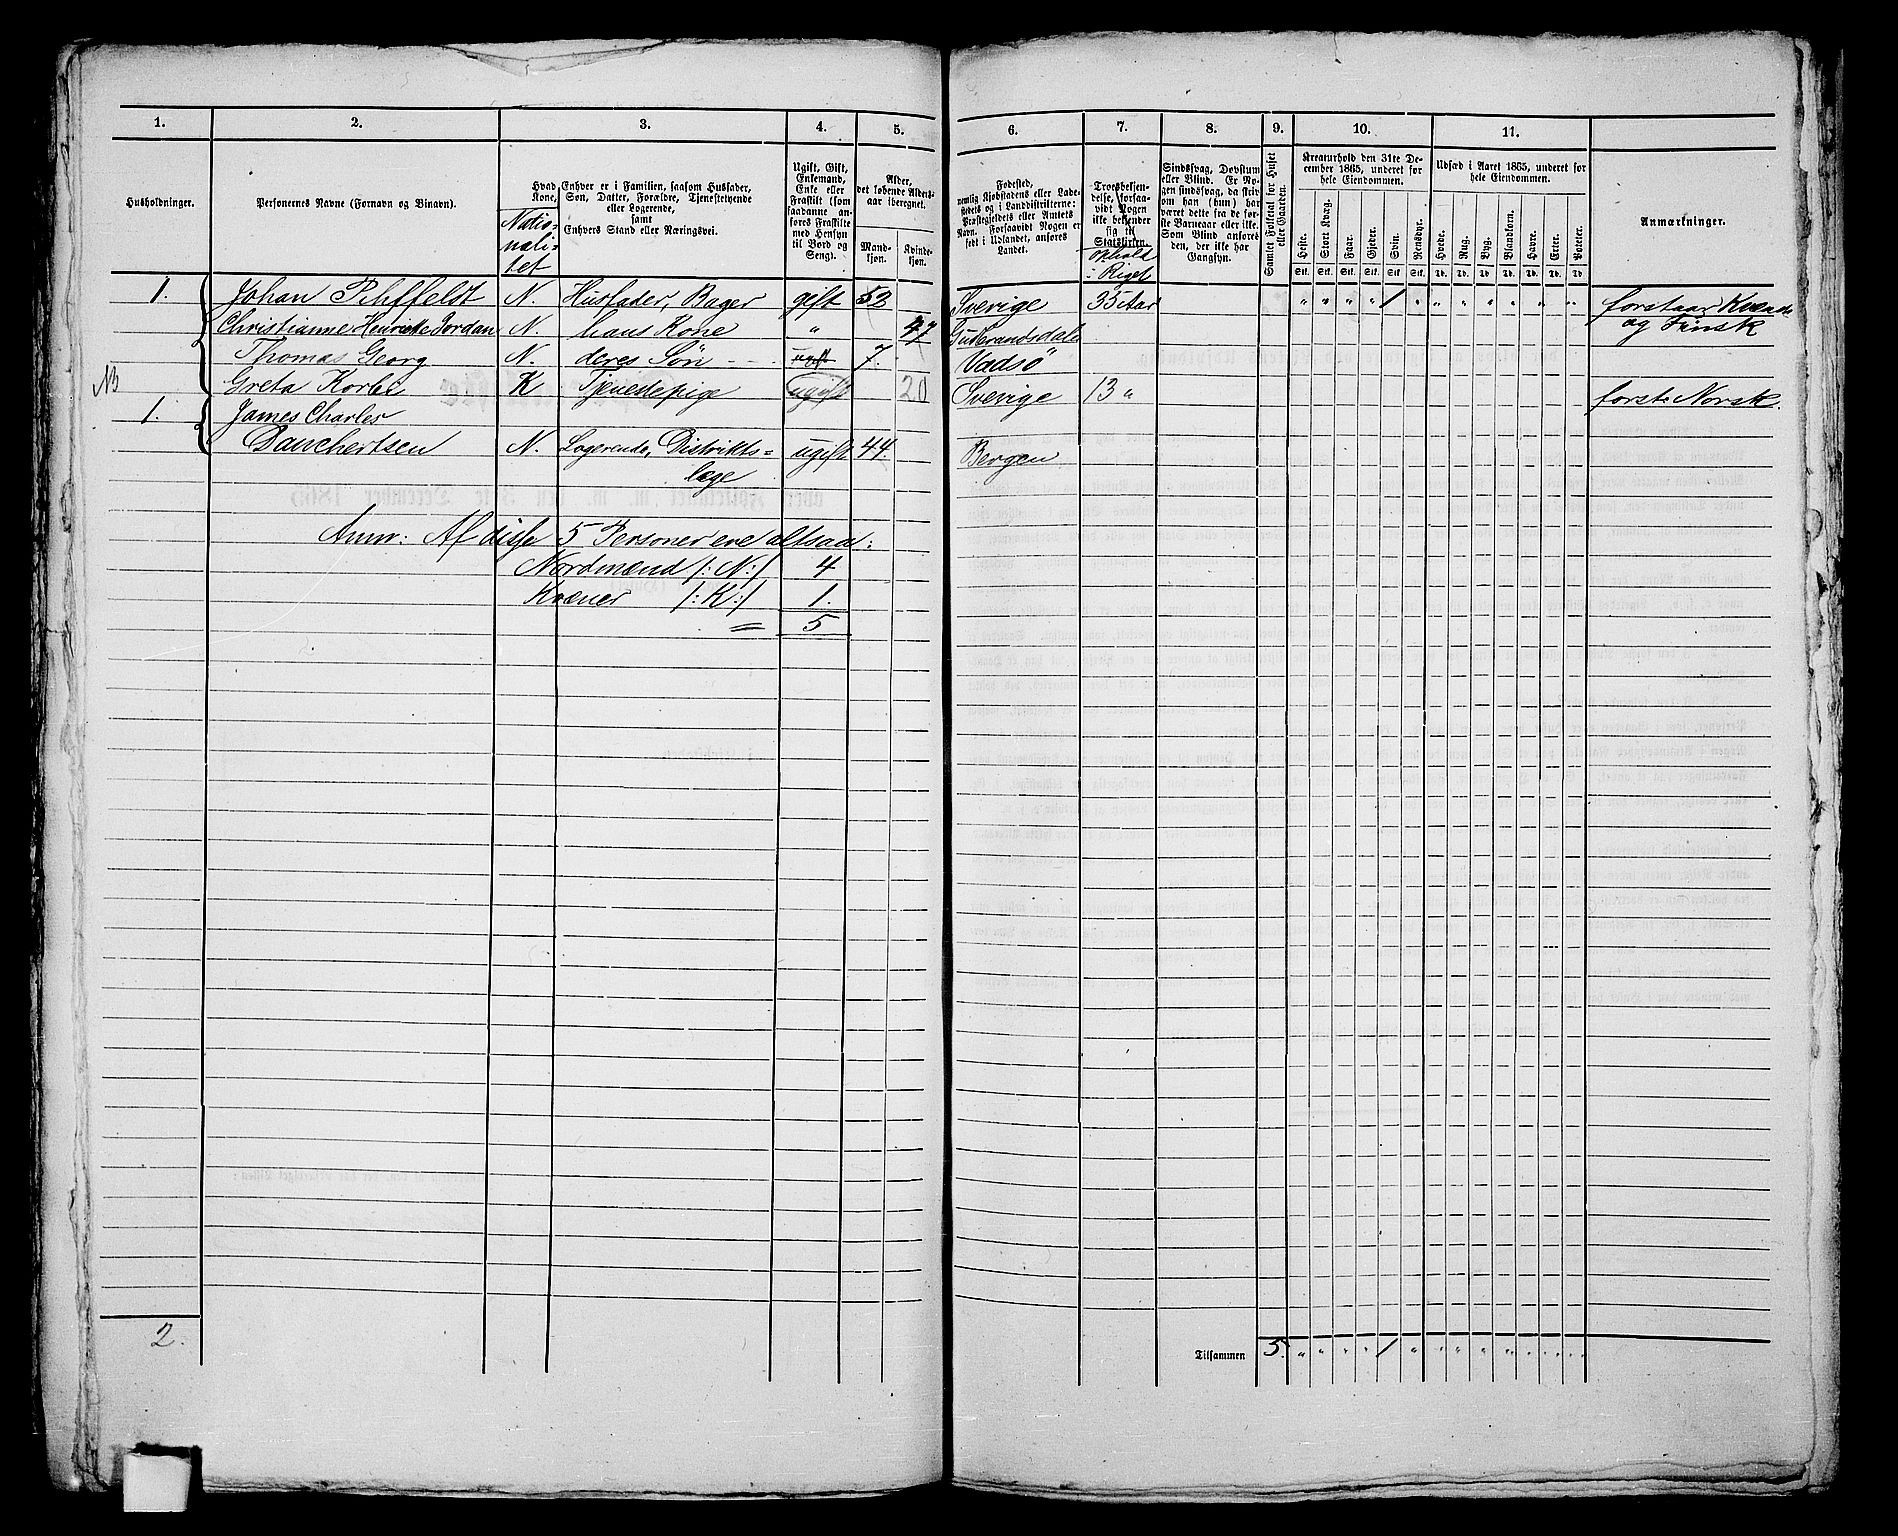 1. 2. 3. 4. 5. 6. 7. 8. 9. 10. 11.
Husholdninger.
Personernes Navne (Fornavn og Binavn).
Hvad
Kone,
Natio-
nali-
tet
Enhver er i Familien, saasom Husfader,
Søn, Datter, Forældre, Tjenestetyende
eller Logerende,
samt
Enhvers Stand eller Næringsvei.
Ugift, Gift,
Enkemand,
Enke eller
Fraskilt (som
saadanne an-
føres Fraskilte
med Hensyn
til Bord og
Seng).
Alder,
det løbende Alders-
aar iberegnet.
Mand-
kjøn.
Kvinde-
kjøn.
Fødested,
nemlig Kjøbstadens eller Lade-
stedets og i Landdistrikterne:
Præstegjeldets eller Amtets
Navn. Forsaavidt Nogen er
født i Udlandet, anføres
Landet.
Troesbekjen-
delse, forsaa-
vidt Nogen
ikke bekjender
sig til
Statskirken.
Ophold
i Riget
Sindssvag, Døvstum
eller Blind. Er No-
gen sindssvag, da skriv
om han (hun) har
været dette fra de før-
ste Barneaar eller ikke.
Som Blind anføres
den, der ikke har
Gangsyn.
Samlet Folketal for Huset
eller Gaarden.
Kreaturhold den 31te De-
cember 1865, underet for
hele Eiendommen.
Heste. Stort Kvæg. Faar. Gjeder. Svin. Rensdyr.
Stk. Stk. Stk. Stk. Stk. Stk.
Udsæd i Aaret 1865, underet for
hele Eiendommen.
Hvede. Rug. Byg. Blandkorn. Havre. Erter. Poteter.
Td. Td. Td. Td. Td. Td. Td.
Anmærkninger.
1. Johan Pihlfeldt N. Husfader, Bager gift 53 Sverige 35 Aar " " " " 1 " " " " " " " " forstaar Kvænsk
og Finsk
Christianne Henriette Jordan N. hans Kone " 47 Gudbrandsdalen
Thomas Georg N. deres Søn - - - ugift 7. Vadsö
NB Greta Korbi K Tjenestepige ugift 20 Sverige 13 " forst. Norsk.
1. James Charles
Danchertsen N. Logerende, Distrikts= ugift 44. Bergen
læge
Anm: Af disse 5 Personer ere altsaa:
Nordmænd /: N:/ 4
Kvæner /: K:/ 1.
= 5
2.
Tilsammen 5. " " " " 1 " " " " " " " "